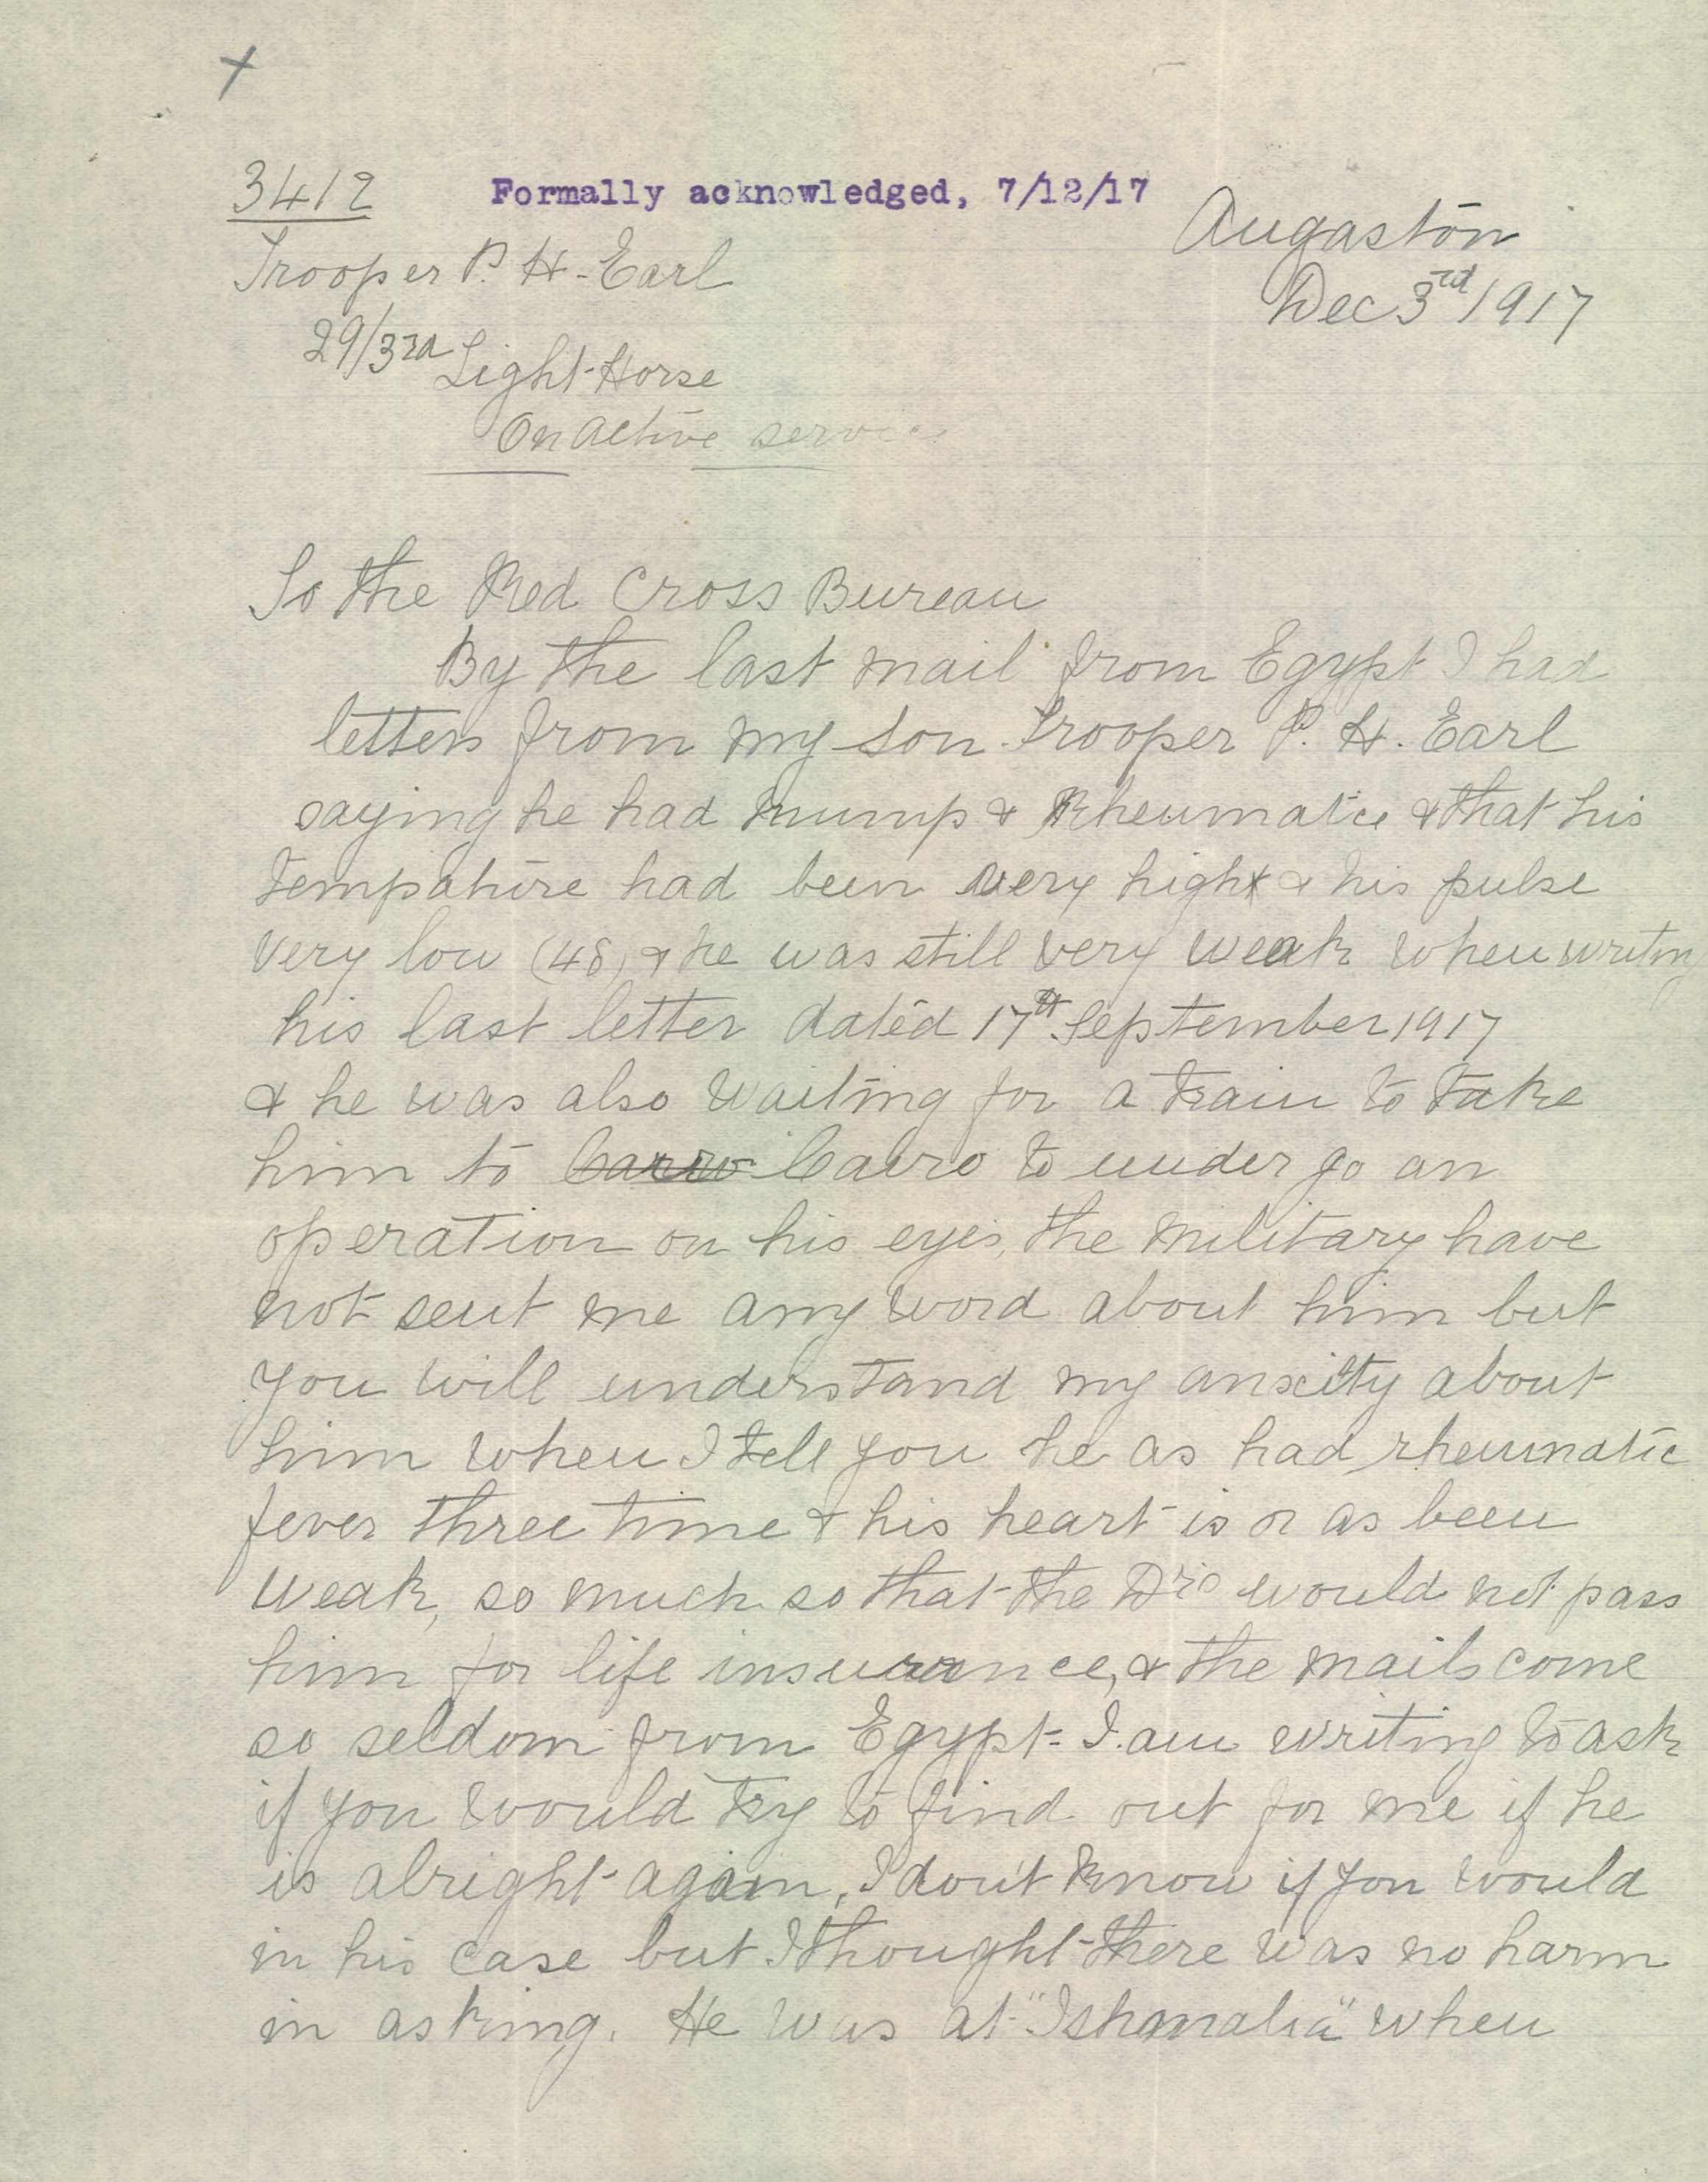 x
3412
Formally acknowledged, 7/12/17
Augaston
Dec 3rd/1917
Trooper P. H. Earl
29/3rd Light Horse
On active service
To the Red Cross Bureau
By the last mail from Egypt I had
letters from my son Trooper P. H. Earl
saying he had mump & Rheumatic & that his
tempature had been very high & his pulse
very low (48) & he was still very weak when writing
his last letter dated 17th September 1917
& he was also waiting for a train to take
him to Cairo Cairo to under go an
operation on his eyes, the military have
not sent me any word about him but
you will understand my anxity about
him when I tell you he as had rheumatic
fever three time & his heart is or as been
weak, so much so that the Drs would not pass
him for life insurance, & the mails come
so seldom from Egypt I am writing to ask
if you would try to find out for me if he
is alright again, I don't know if you would
in his case but I thought there was no harm
in asking. He was at "Ishmalia" when